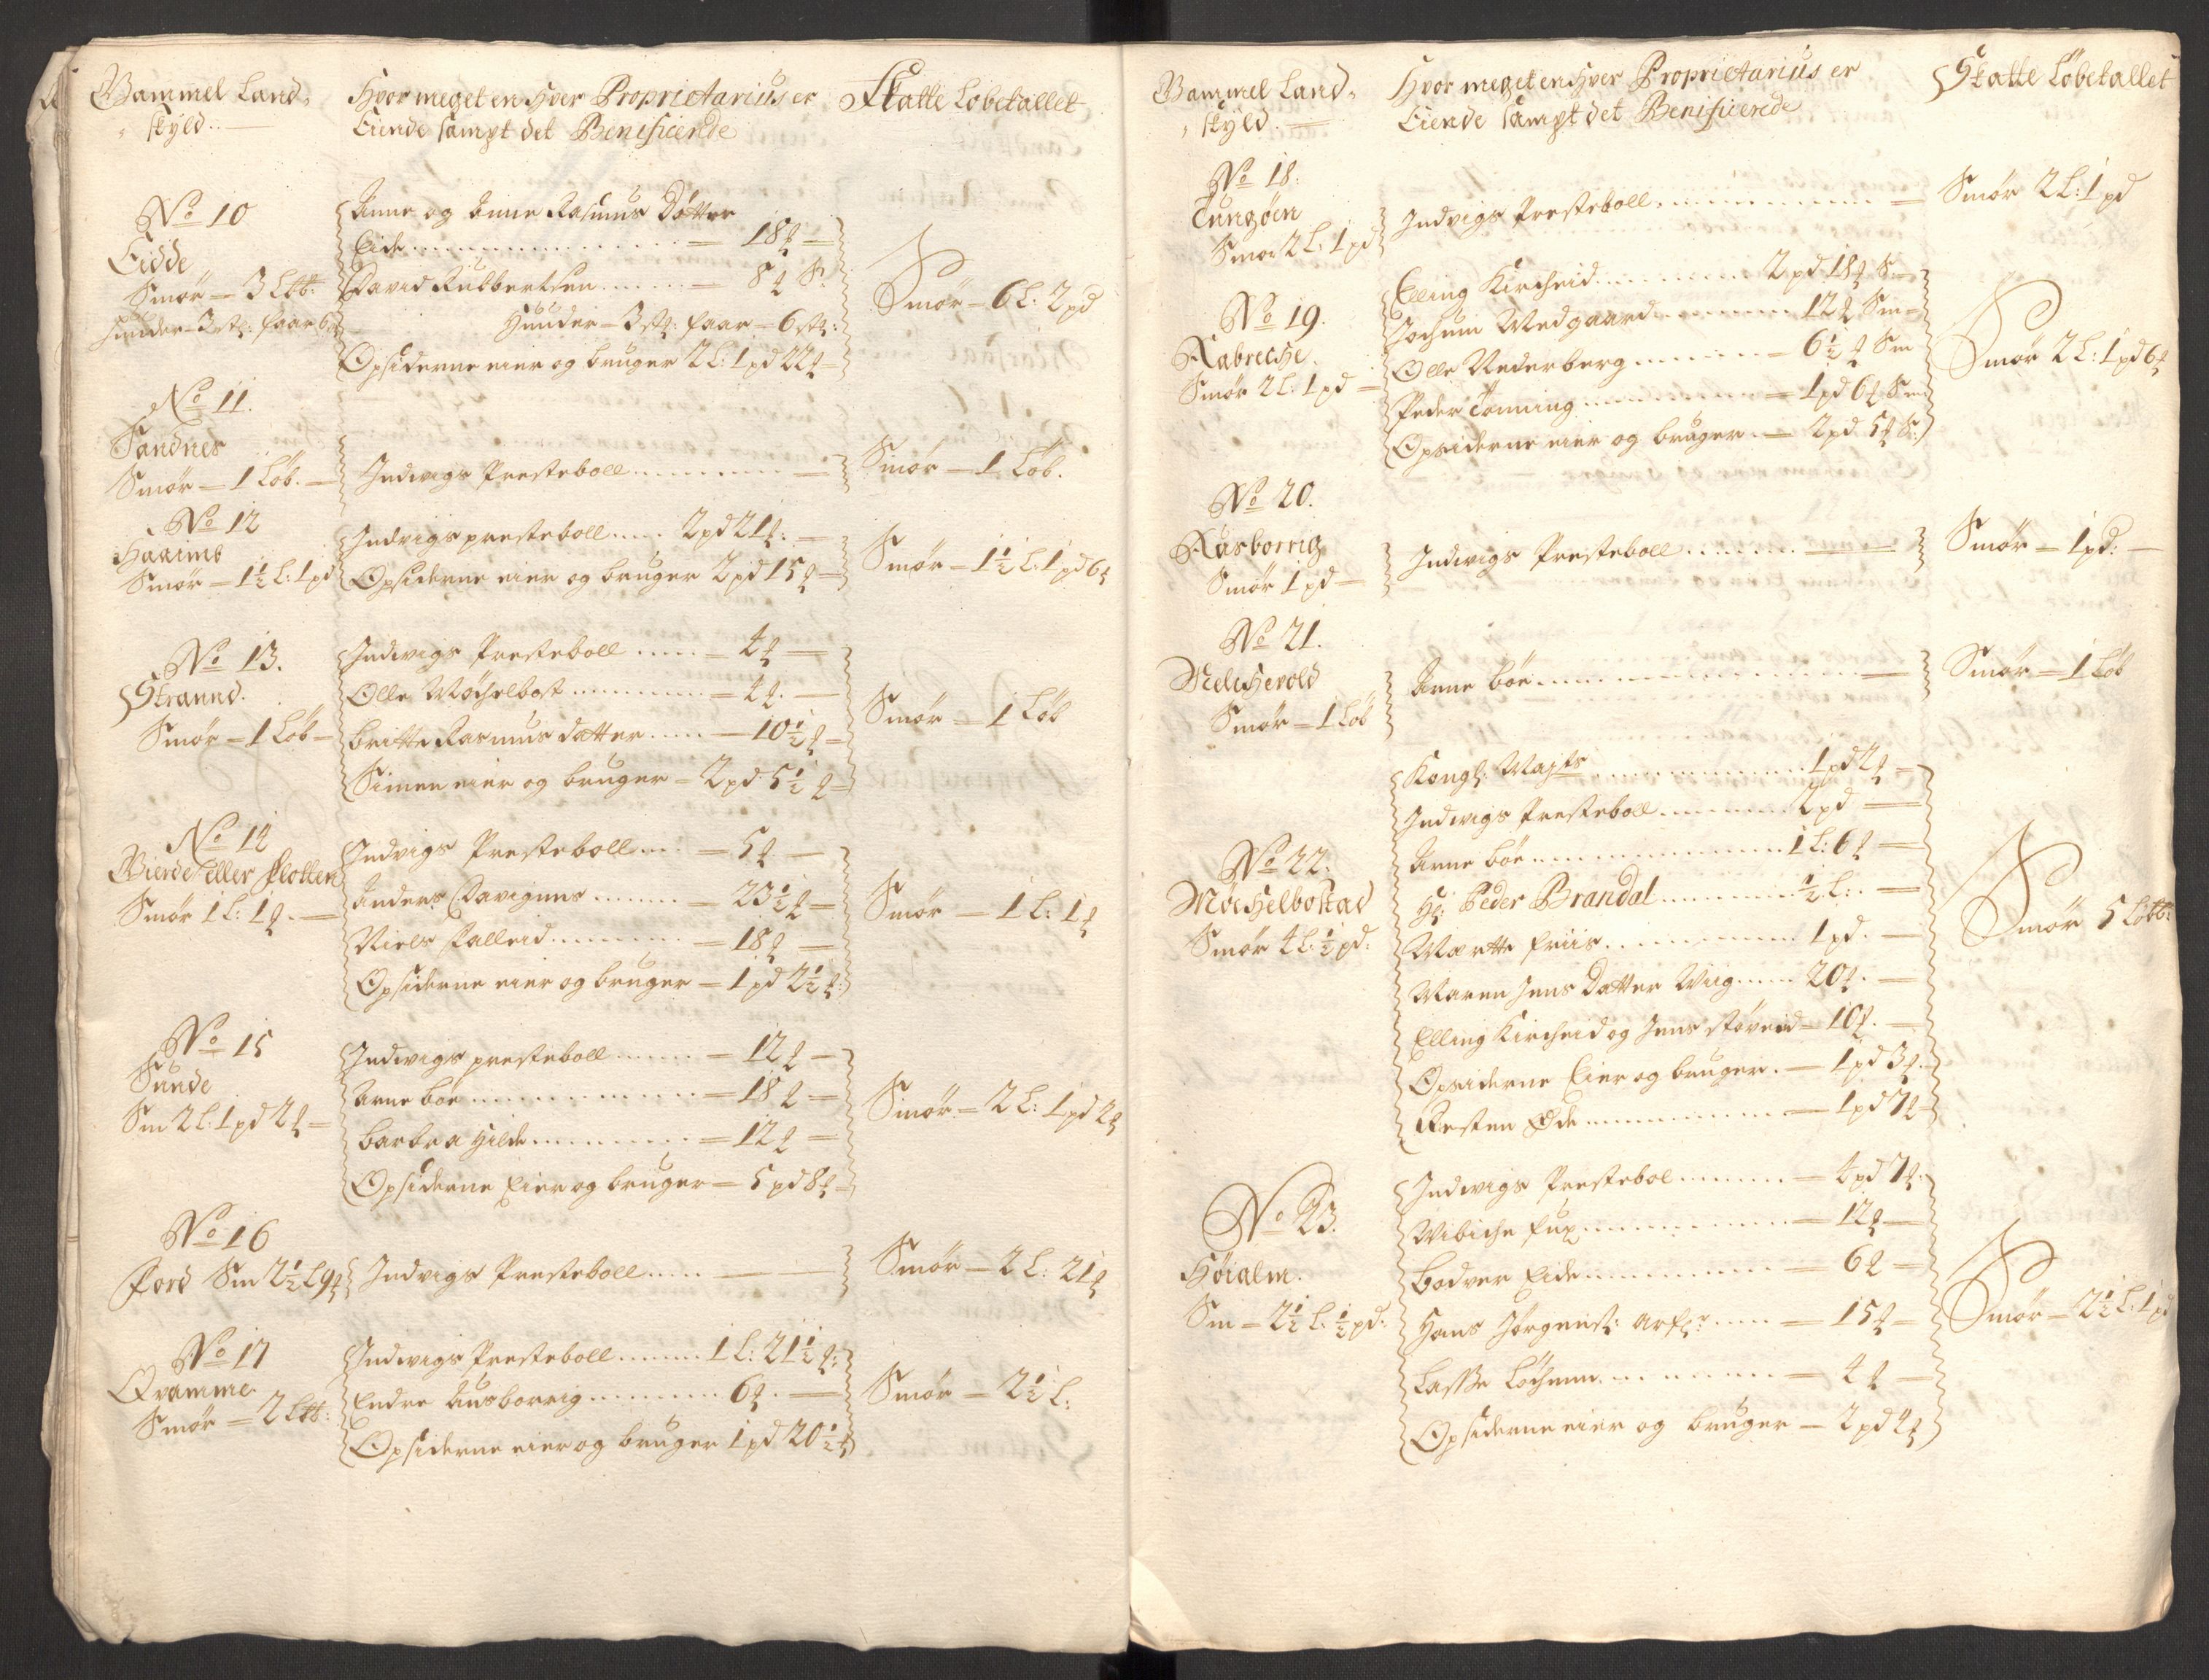 Gammel Land-
skyld.
Hvor meget en hver Proprietarius er
Eiende sampt det Benificerede
Skatte Løbetallet
No 10
Eidde
Smør - 3 Løb:
huuder - 3 stk: faar 6
Anne og Anne Rasmus Døtter
Eide - 18 ℔ -
David Rubbertsen - 8 ℔ S:
Huuder - 3 stk: faar - 6 stk:
Opsiderne eier og bruger 2 L: 1 pd 22 ℔
Smør - 6 L: 2 pd
No 11.
Sandnes
Smør - 1 Løb. -
Indvigs Presteboll
Smør - 1 Løb.
No 12
Haaimb
Smør - 1½ L: 1 pd
Indvigs presteboll 2 pd 21 ℔: -
Opsiderne eier og bruger 2 pd 15 ℔
Smør - 1½ L: 1 pd 6 ℔
No 13.
Strannd.
Smør - 1 Løb -
Indvigs Presteboll - 4 ℔ -
Olle Møchelbost - 4 ℔. -
Britte Rasmus datter - 10½ ℔ -
Simen eier og bruger - 2 pd 5½ ℔ -
Smør - 1 Løb
No 14
Gierde eller Flotten
Smør 1 L: 1 ℔. -
Indvigs Presteboll - 5 ℔ -
Anders Davignes - 23½ ℔ -
Niels Falleid - 18 ℔ -
Opsiderne eier og bruger - 1 pd 2½ ℔:
Smør - 1 L: 1 ℔
No 15
Sunde
Sm 2 L: 1 pd 2 ℔ -
Indvigs presteboll - 12 ℔ -
Arne bøe - 18 ℔ -
Barbra Hilde - 12 ℔ -
Opsiderne Eier og bruger - 5 pd 8 ℔ -
Smør - 2 L: 1 pd 2 ℔
No 16
Ford Sm 2½ L 9 ℔
Indvigs Presteboll
Smør - 2 L: 21 ℔
No 17
Qvamme
Smør - 2 Løb:
Indvigs Presteboll 1 L: 21½ ℔:
Endre Ausborrig 6 ℔. -
Opsiderne eier og bruger 1 pd 20½ ℔
Smør - 2½ L:
Gammel Land-
skyld.
Hvor meget en hver Proprietarius er
Eiende sampt det Benificerede
Skatte Løbetallet
No 18.
Tungøen
Smør 2 L: 1 pd
Indvigs Presteboll
Smør 2 L: 1 pd
No 19.
Aabreche
Smør 2 L: 1 pd -
Elling Kircheid 2 pd 18 ℔ S:
Jochum Medgaard 12 ℔ Sm
Olle Nederberg - 6½ ℔ Sm
Peder Tonning - 1 pd 6 ℔ Sm
Opsiderne eier og bruger - 2 pd 5 ℔ S:
Smør 2 L: 1 pd 6 ℔
No 20.
Ausborrig
Smør 1 pd -
Indvigs Presteboll
Smør - 1 pd: -
No 21.
Melchevold
Smør - 1 Løb
Arne bøe
Smør - 1 Løb
No 22.
Møchelbostad
Smør 4 L: ½ pd:
Kongl: Majts 1 pd 2 ℔ -
Indvigs Presteboll 2 pd -
Arne bøe 1 L: 6 ℔ -
Hr: Peder Brandal ½ L: -
Mærtte Friis 1 pd. -
Maren Jens Datter Wiig 20 ℔. -
Elling Kircheid og Jens Støveid - 10 ℔. -
Opsiderne Eier og bruger. - 1 pd 3 ℔.
Resten Øde - 1 pd 7 ℔
Smør 5 Løb:
No 23.
Høialm.
Sm - 2½ L: ½ pd:
Indvigs Prestebol - 4 pd 7 ℔.
Wibiche Fux - 12 ℔ -
Bodver Eide - 6 ℔ -
Hans Jørgens: Arf: - 15 ℔ -
Lasse Løchenn - 4 ℔ -
Opsiderne eier og bruger - 2 pd 4 ℔
Smør - 2½ L: 1 pd